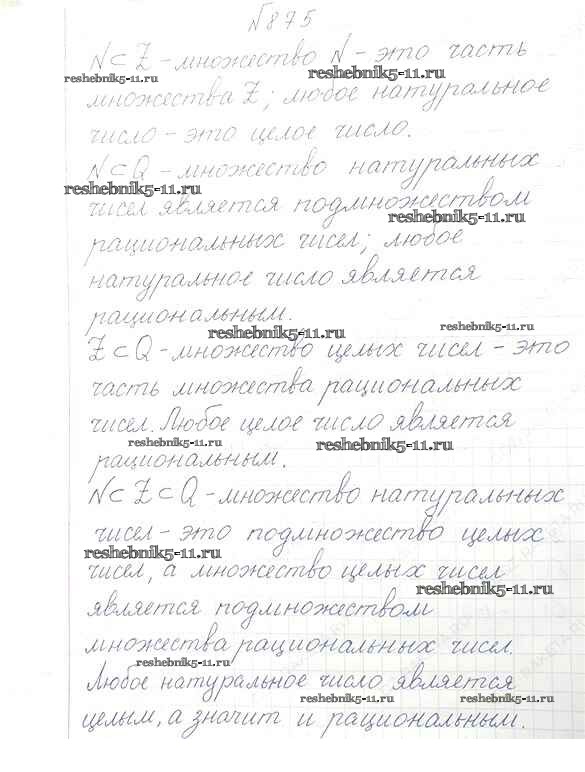 №875
N ⊂ Z - множество N - это часть
reshebnik5-11.ru
reshebnik5-11.ru
множества Z; любое натуральное
число - это целое число.
N ⊂ Q - множество натуральных
reshebnik5-11.ru
чисел является подмножеством
reshebnik5-11.ru
рациональных чисел; любое
натуральное число является
рациональным.
reshebnik5-11.ru
reshebnik5-11.ru
Z ⊂ Q - множество целых чисел - это
часть множества рациональных
чисел. Любое целое число является
reshebnik5-11.ru
reshebnik5-11.ru
рациональным.
N ⊂ Z ⊂ Q - множество натуральных
чисел - это подмножество целых
reshebnik5-11.ru
чисел, а множество целых чисел
reshebnik5-11.ru
является подмножеством
множества рациональных чисел.
reshebnik5-11.ru
Любое натуральное число является
reshebnik5-11.ru
reshebnik5-11.ru
целым, а значит и рациональным.